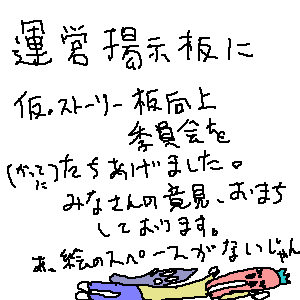 運営掲示板に
仮。ストーリー板向上
委員会を
(かってに)たちあげました。
みなさんの意見、おまち
しております。
あ、絵のスペースがないじゃん